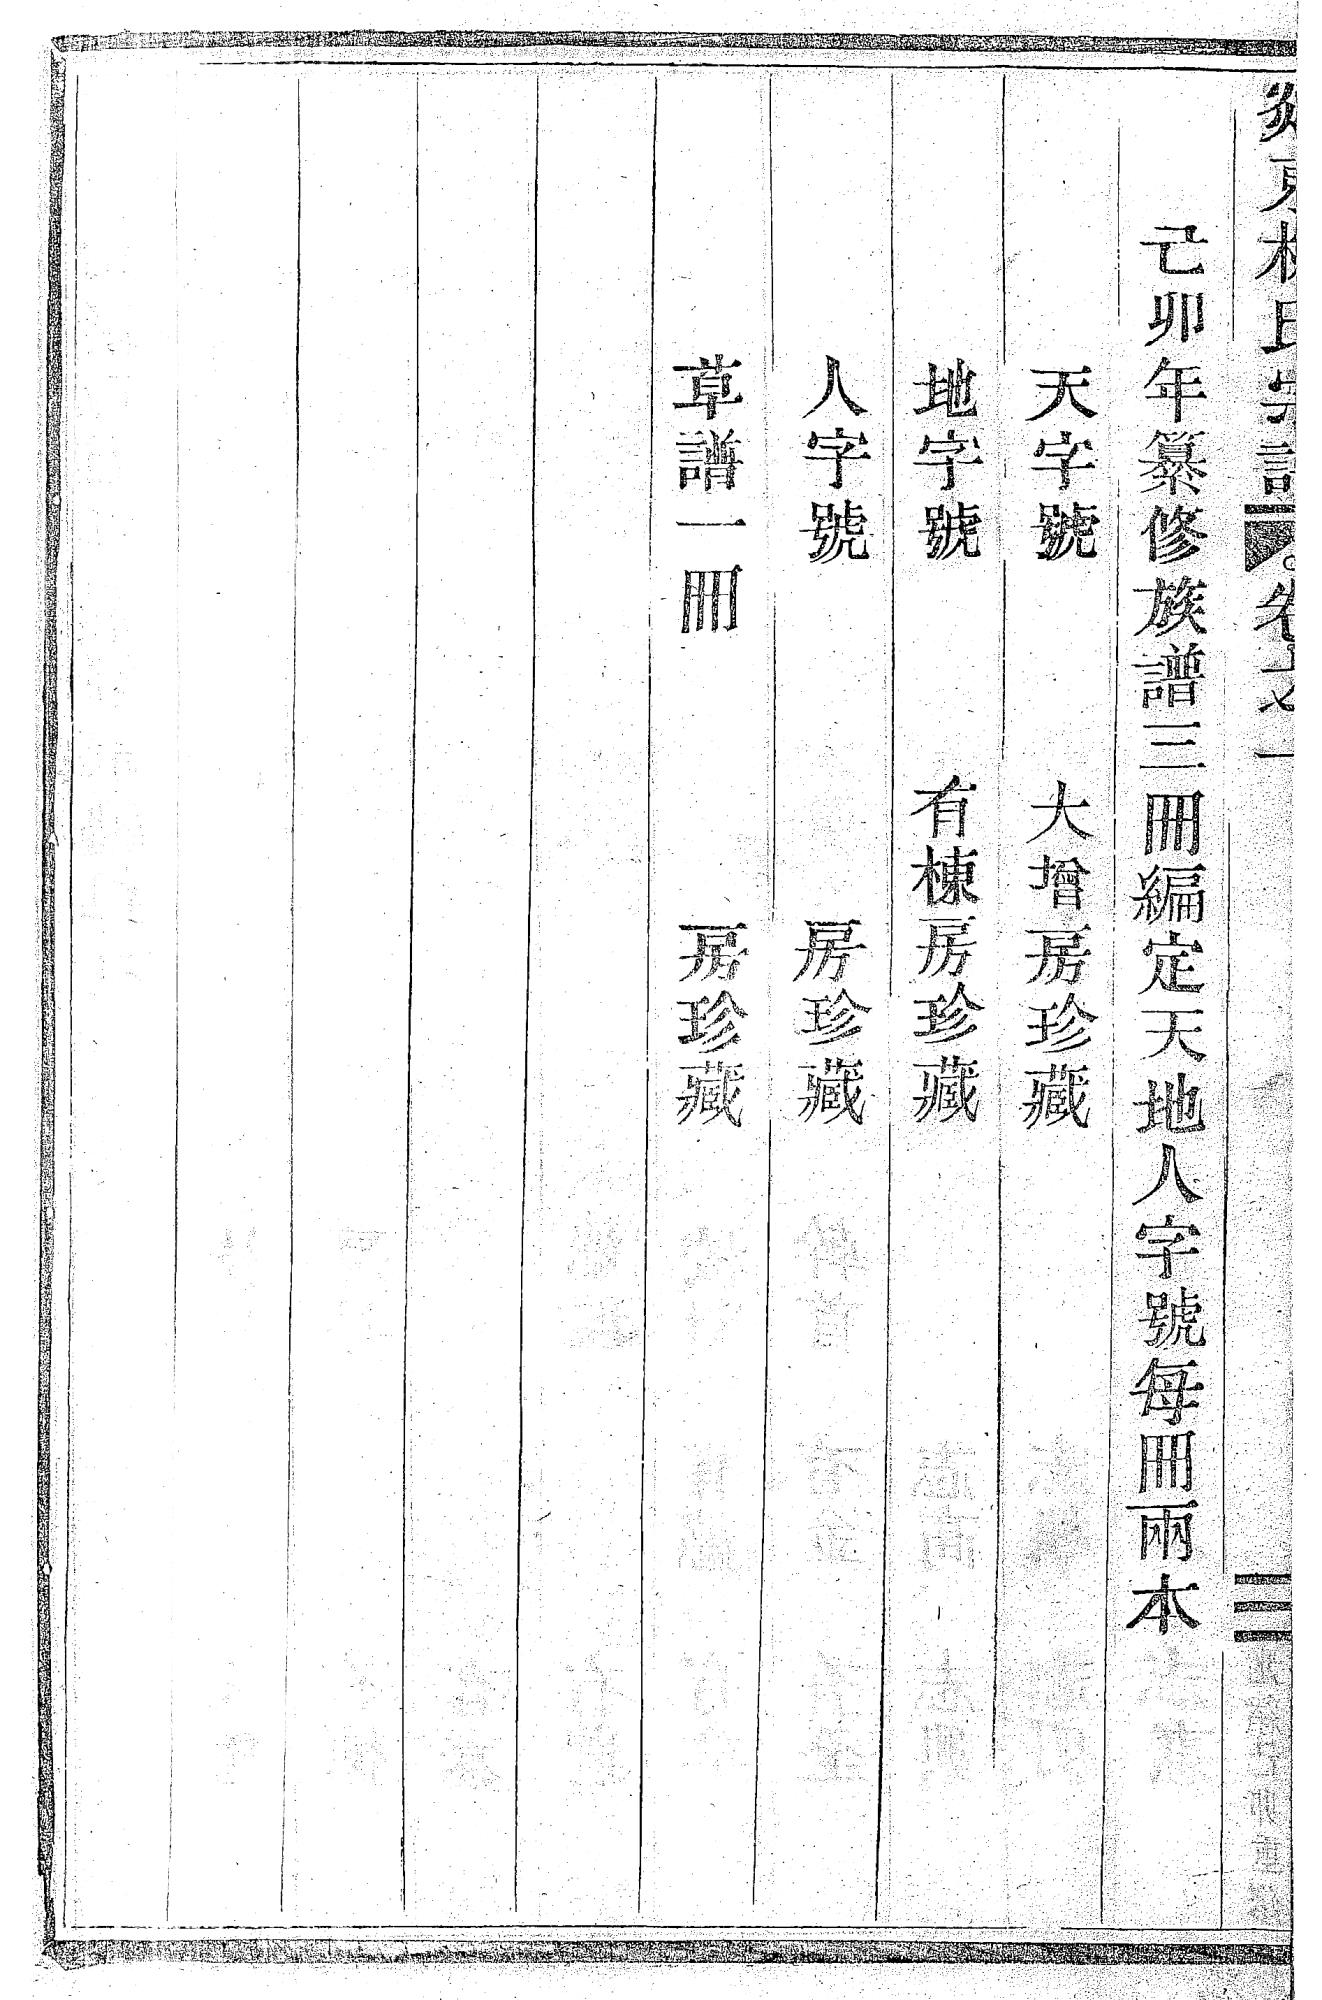 氏宗譜 卷之一
己卯年纂修族譜三冊編定天地人字號每冊兩本
天字號 大增房珍藏
地字號 有棟房珍藏
人字號 房珍藏
草譜一冊 房珍藏